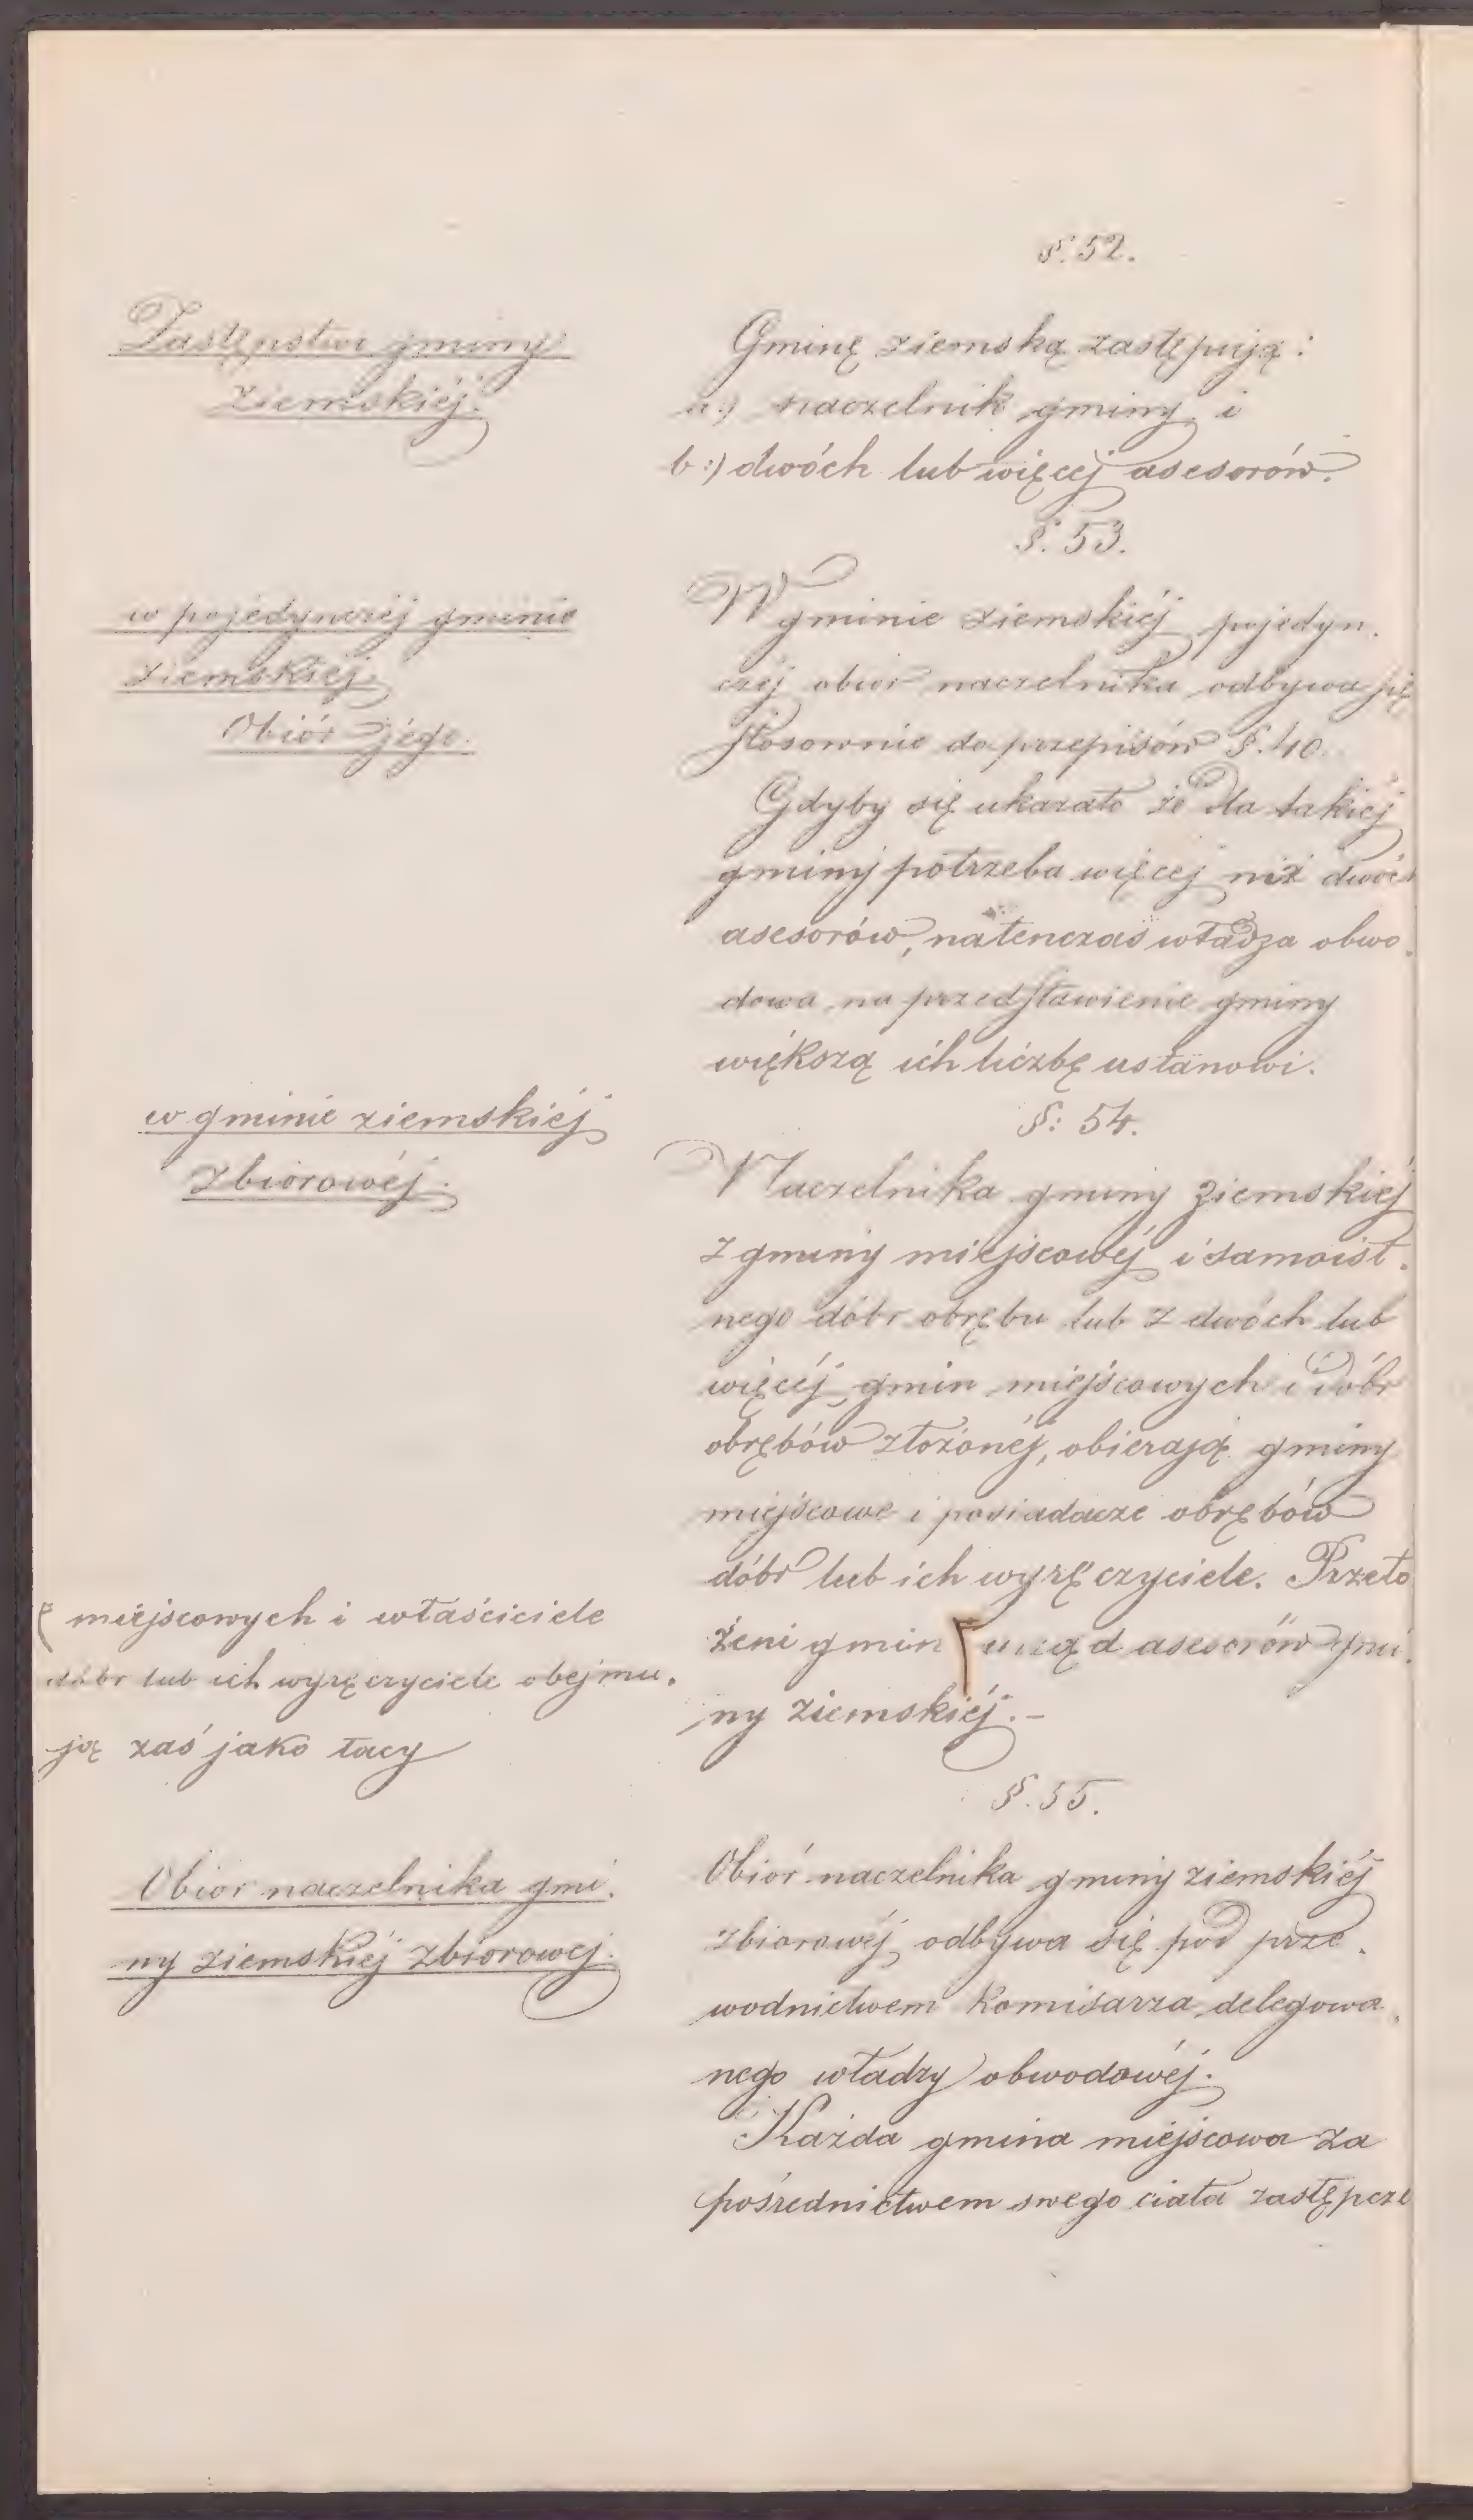 §. 52.
Zastępstwo gminy
ziemskiéj.
Gminę ziemską zastępują:
a:) naczelnik gminy i
b:) dwóch lub więcej asesorów.
§. 53.
w pojedynczéj gminie
ziemskiéj.
Obiór jego.
W gminie ziemskiéj pojedyn.
czéj obiór naczelnika odbywa się
stosownie do przepisów §. 40.
Gdyby się ukazało że dla takiéj
gminy potrzeba więcej niż dwóch
asesorów, natenczas władza obwo.
dowa na przedstawienie gminy
większą ich liczbę ustanowi.
§: 54.
w gminie ziemskiéj
zbiorowéj.
Naczelnika gminy ziemskiéj
z gminy miejscowéj i samoist.
nego dóbr obrębu lub z dwóch lub
więcéj gmin miejscowych i dóbr
obrębów złożonéj, obierają gminy
miejscowe i posiadacze obrębów
dóbr lub ich wyręczyciele. Przeło
żeni gmin ⌈ urząd asesorów gmi.
ny ziemskiéj. –
⌈ miejscowych i właściciele
dóbr lub ich wyręczyciele obejmu.
ją zaś jako tacy
§. 55.
Obior naczelnika gmi.
ny ziemskiéj zbiorowej.
Obiór naczelnika gminy ziemskiéj
zbiorowéj odbywa się pod prze.
wodnictwem Komisarza delegowa.
nego władzy obwodowéj.
Każda gmina miejscowa za
pośrednictwem swego ciała zastępcze